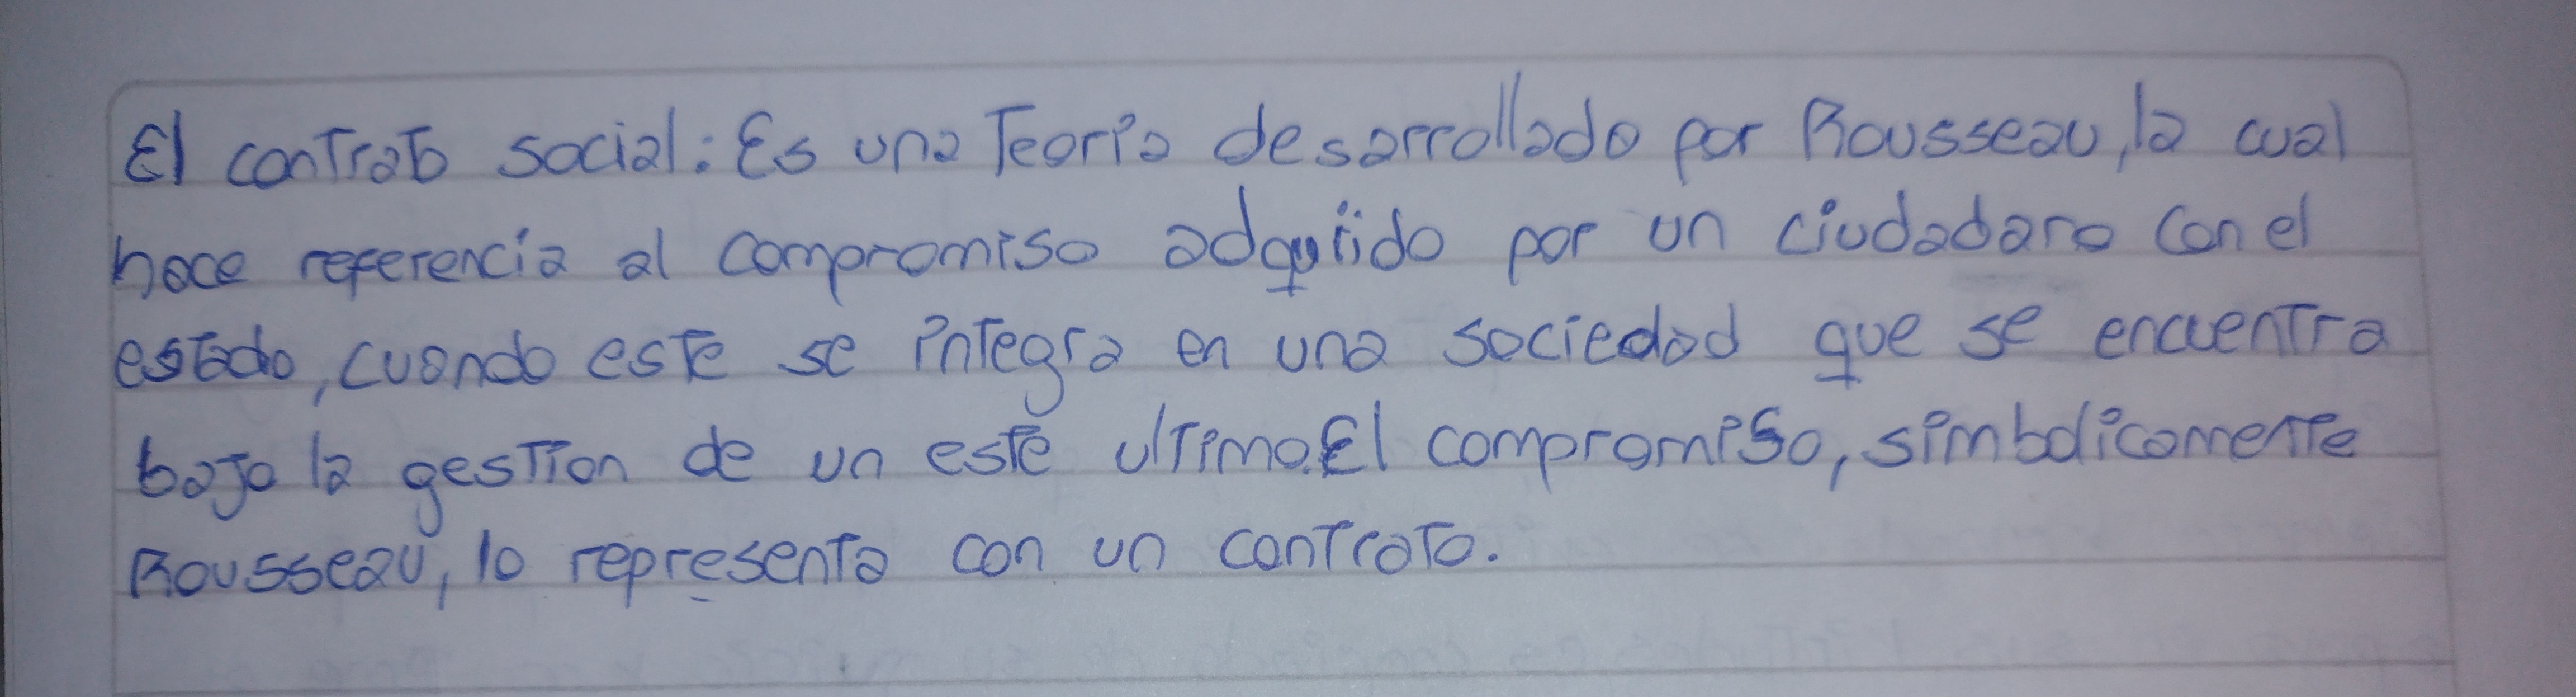 El contrato social: Es una Teoría desarrollado por Rousseau, la cual
hace referencia al compromiso adquiido por un ciudadano con el
estado, cuando este se integra en una sociedad que se encuentra
bajo la gestion de un este ultimo. El compromiso, simbolicamente
Rousseau, lo representa con un contrato.